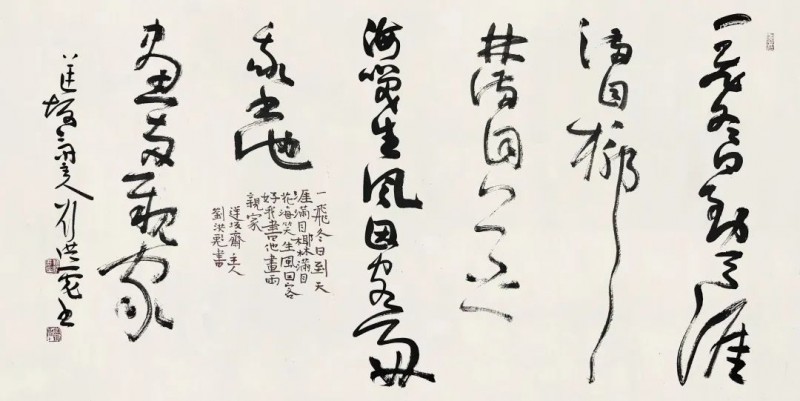 一飛冬日到天涯
滿目椰
林滿目花
海笑生風因客好
我書他
畫兩親家
一飛冬日到天
涯滿目椰林滿目
花海笑生風因客
好我書他畫兩
親家
逆坂齋主人
劉洪彪書
逆坂齋主人劉洪彪書